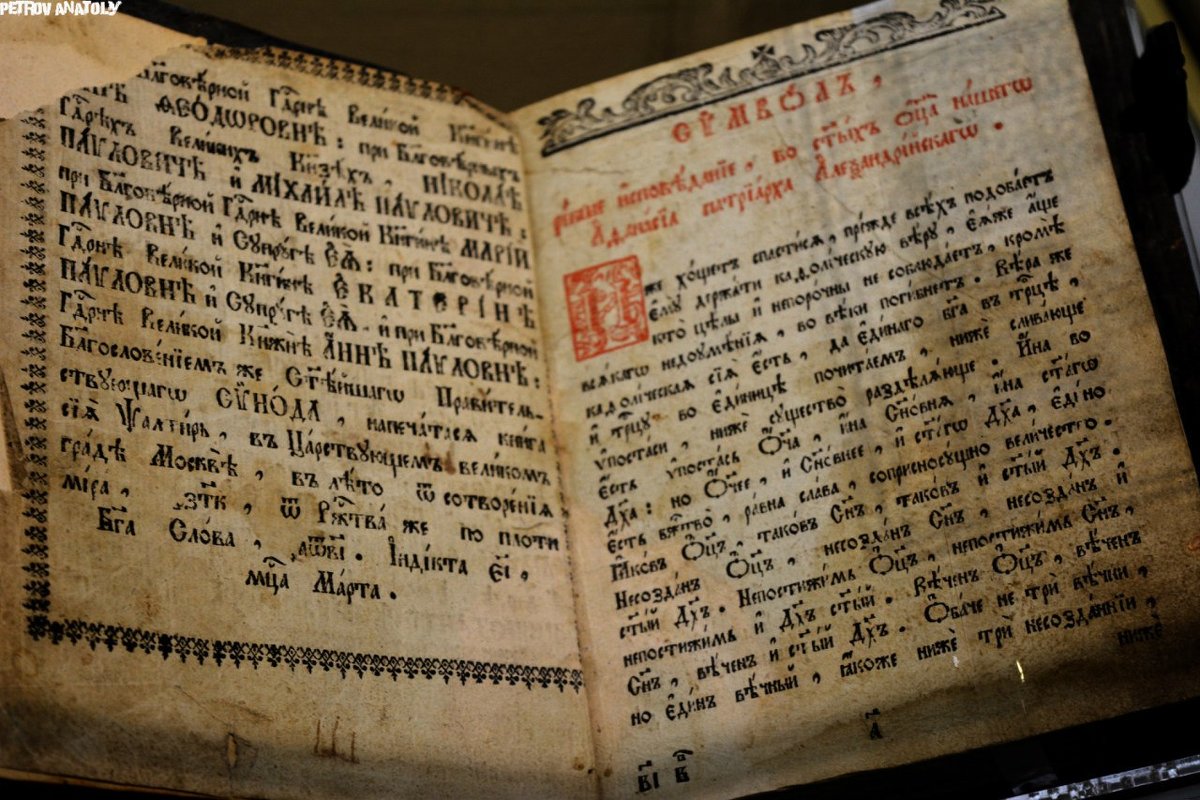 PETROV ANATOLY
Бл҃говѣрной Гд҃рнѣ Великой Кнгинѣ
Ѳеодѡровнѣ : при Бл҃говѣрныхъ
Гд҃рѣхъ Великихъ Кнѕѣхъ , Нїколаѣ
Паѵловичѣ и҆ Мїхаилѣ Паѵловичѣ :
при Бл҃говѣрной Гд҃рнѣ Великой Кнгинѣ Марїи
Паѵловнѣ и҆ Сꙋпрꙋгѣ Еѧ҆̀ : при Бл҃говѣрной
Гд҃рнѣ Великой Кнгинѣ Екатерінѣ
Паѵловнѣ и҆ Сꙋпрꙋгѣ Еѧ҆̀ . и҆ при Бл҃говѣрной
Гд҃рнѣ Великой Кнжнѣ Аннѣ Паѵловнѣ :
Бл҃гословенїемъ же Ст҃ѣйшагѡ Правитель-
ствꙋющагѡ Сѵно́да , напечатасѧ книга
сїѧ̀ Ѱалтирь , въ Царствꙋющемъ великомъ
градѣ Москвѣ , въ лѣто ѿ сотворенїѧ
мі́ра , ҂зт҃к , ѿ Рж҃тва̀ же по плоти
Бг҃а Сло́ва , ҂аѿв҃і . І҆ндїкта є҃і ,
мц҃а Марта .
Сѵ́мвѡлъ ,
и҆сповѣданїе , во ст҃ыхъ Оц҃а нашегѡ
Аѳанасїа патрїарха Алеѯандрійскагѡ .
И҆же хощетъ спастисѧ , пре́жде всѣхъ подобаетъ
є҆мꙋ̀ держа́ти каѳоли́ческꙋю вѣ́рꙋ , є҆ѧ́же а҆́ще
кто̀ цѣ́лы и҆ непоро́чны не соблюда́етъ , кромѣ̀
всѧ́кагѡ недоꙋмѣ́нїѧ , во вѣ́ки поги́бнетъ . Вѣ́ра же
каѳоли́ческаѧ сїѧ̀ є҆́сть , да є҆ди́наго бг҃а въ трⷪ҇цѣ ,
и҆ трⷪ҇цꙋ во є҆ди́ницѣ почита́емъ , нижѐ слива́юще
ѵ҆поста́си , нижѐ сꙋщество̀ раздѣлѧ́юще . И҆́на бо
є҆́сть ѵ҆поста́сь Ѻ҆́ч҃а , и҆́на Сн҃о́внѧ , и҆́на ст҃а́гѡ
Дх҃а : но Ѻ҆́ч҃ее , и҆ Сн҃о́внее , и҆ ст҃а́гѡ Дх҃а , є҆ди́но
є҆́сть бж҃ество̀ , ра́вна сла́ва , соприсносꙋ́щно вели́чество .
Ꙗ҆ко́въ Ѻ҆ц҃ъ , тако́въ Сн҃ъ , тако́въ и҆ ст҃ы́й Дх҃ъ .
Несозда́нъ Ѻ҆ц҃ъ , несозда́нъ Сн҃ъ , несозда́нъ и҆
ст҃ы́й Дх҃ъ . Непостижи́мь Ѻ҆ц҃ъ , непостижи́мь Сн҃ъ ,
непостижи́мь и҆ Дх҃ъ ст҃ы́й . Вѣ́ченъ Ѻ҆ц҃ъ , вѣ́ченъ
Сн҃ъ , вѣ́ченъ и҆ ст҃ы́й Дх҃ъ . Ѻ҆ба́че не трѝ вѣ́чни ,
но є҆ди́нъ вѣ́чный , ꙗ҆́коже нижѐ трѝ несозда́ннїи ,
нижѐ
в҃і в҃
а҃